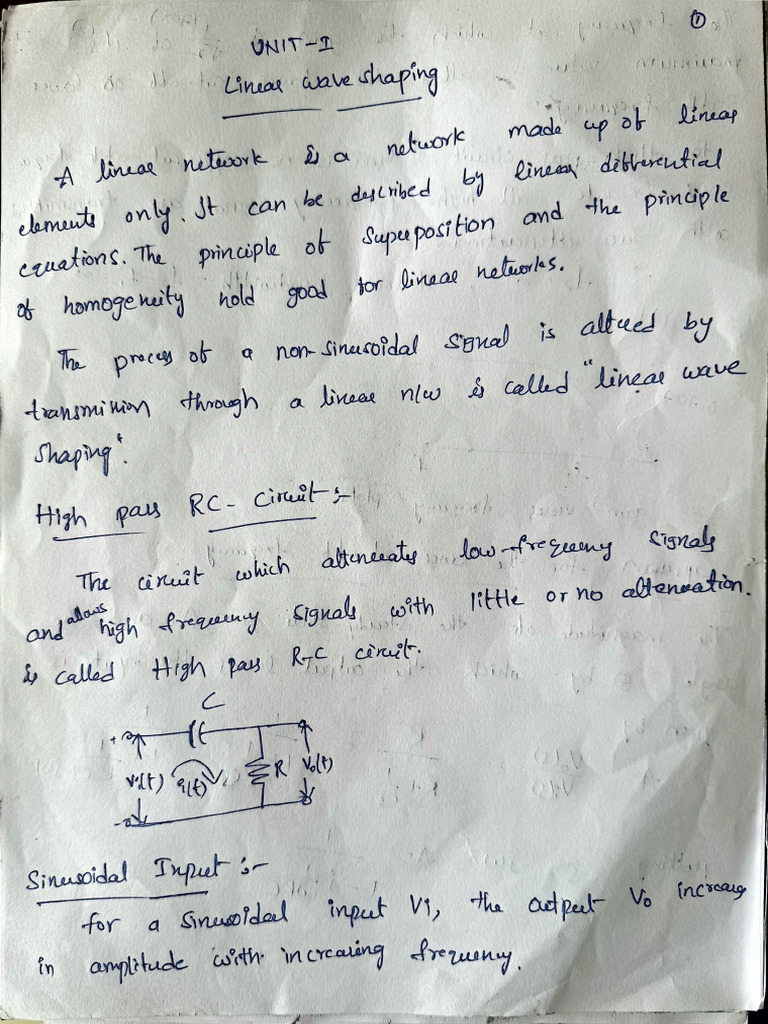 ①
UNIT-I
Linear wave shaping
A linear network is a network made up of linear
elements only. It can be described by linear differential
equations. The principle of superposition and the principle
of homogeneity hold good for linear networks.
The process of a non-sinusoidal signal is altered by
transmission through a linear n/w is called "linear wave
shaping".
High pass RC- Circuit :-
The circuit which attenuates low-frequency signals
and allows high frequency signals with little or no attenuation.
is called High pass R-C circuit.
C
+
Vi(t) i(t) R Vo(t)
-
Sinusoidal Input :-
for a sinusoidal input Vi, the output Vo increases
in amplitude with increasing frequency.